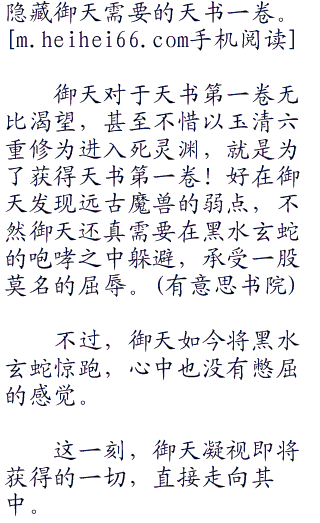 隐藏御天需要的天书一卷。
[m.heihei66.com手机阅读]
御天对于天书第一卷无
比渴望，甚至不惜以玉清六
重修为进入死灵渊，就是为
了获得天书第一卷！好在御
天发现远古魔兽的弱点，不
然御天还真需要在黑水玄蛇
的咆哮之中躲避，承受一股
莫名的屈辱。(有意思书院)
不过，御天如今将黑水
玄蛇惊跑，心中也没有憋屈
的感觉。
这一刻，御天凝视即将
获得的一切，直接走向其
中。